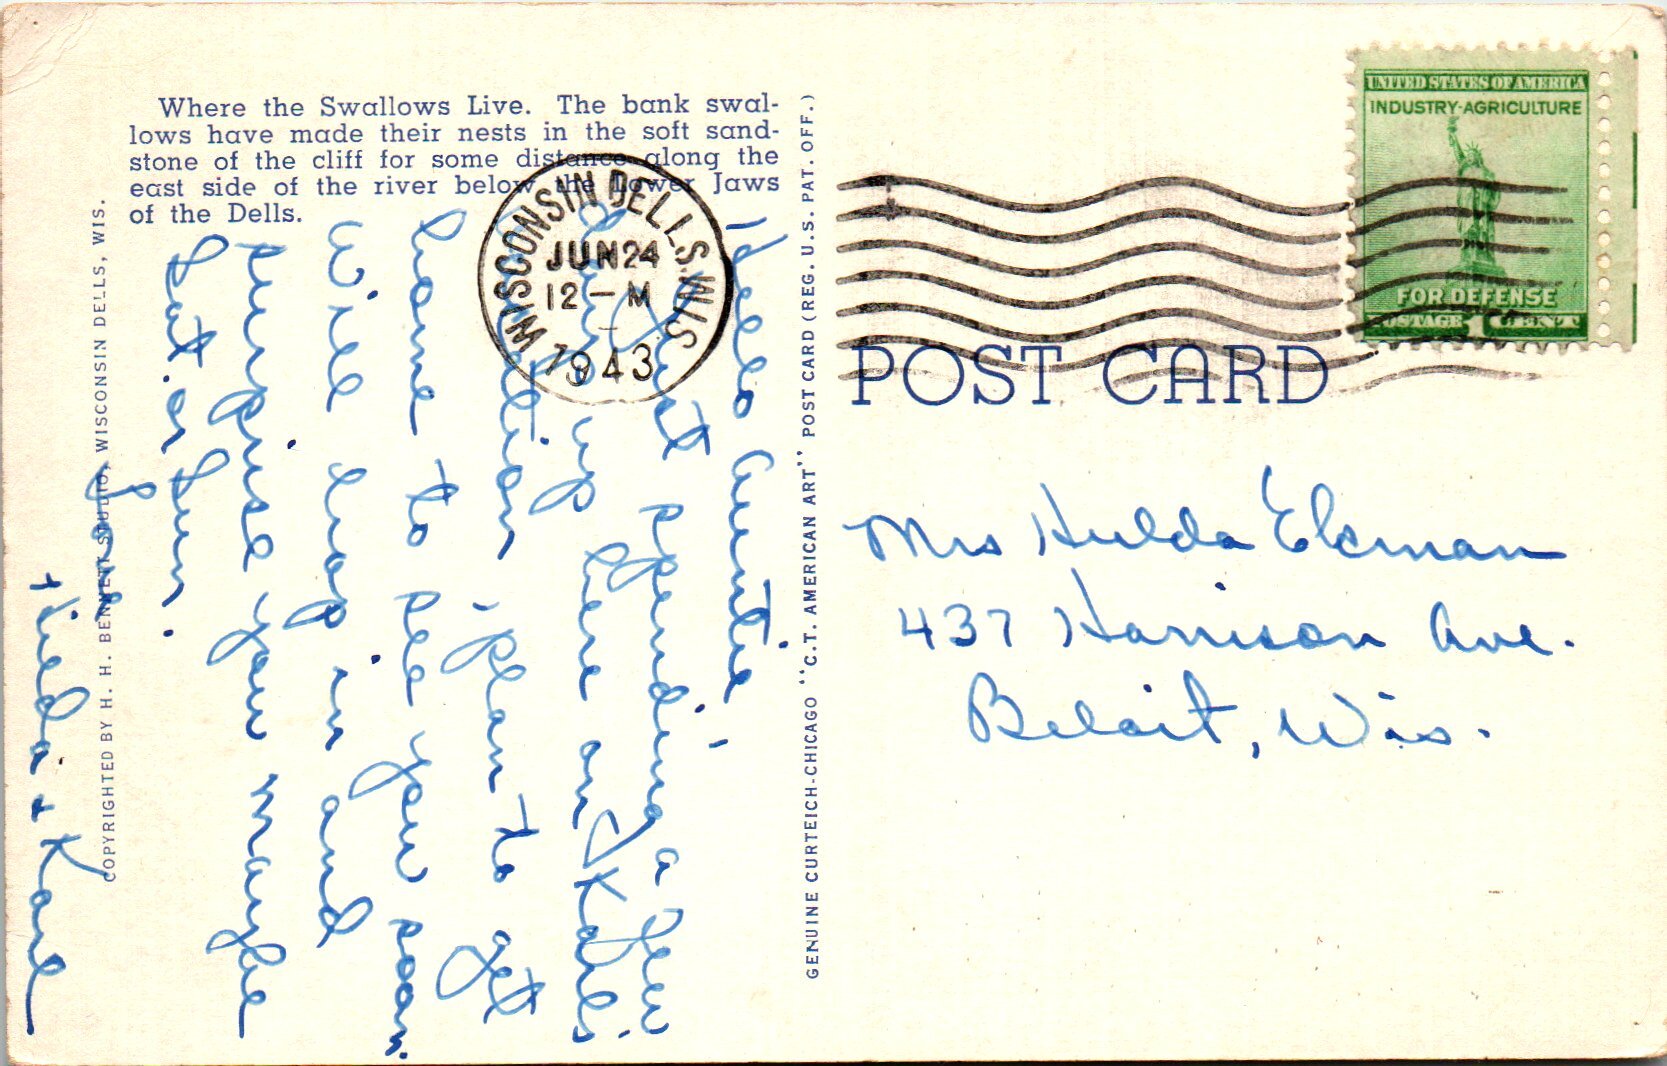 Where the Swallows Live. The bank swal-
lows have made their nests in the soft sand-
stone of the cliff for some distance along the
east side of the river below the Lower Jaws
of the Dells.
COPYRIGHTED BY H. H. BENNETT STUDIO, WISCONSIN DELLS, WIS.
Hello Auntie,
Just spending a few
days up here on Karl's
vacation, plan to get
home to see you soon.
Will drop in and
surprise you maybe
Sat. or Sun.
Love
+ Frieda + Karl
GENUINE CURTEICH-CHICAGO "C.T. AMERICAN ART" POST CARD (REG. U.S. PAT. OFF.)
WISCONSIN DELLS, WIS.
JUN 24
12 - M
1943
UNITED STATES OF AMERICA
INDUSTRY-AGRICULTURE
FOR DEFENSE
POSTAGE 1 CENT
POST CARD
Mrs Hulda Ekman
437 Harrison Ave.
Beloit, Wis.